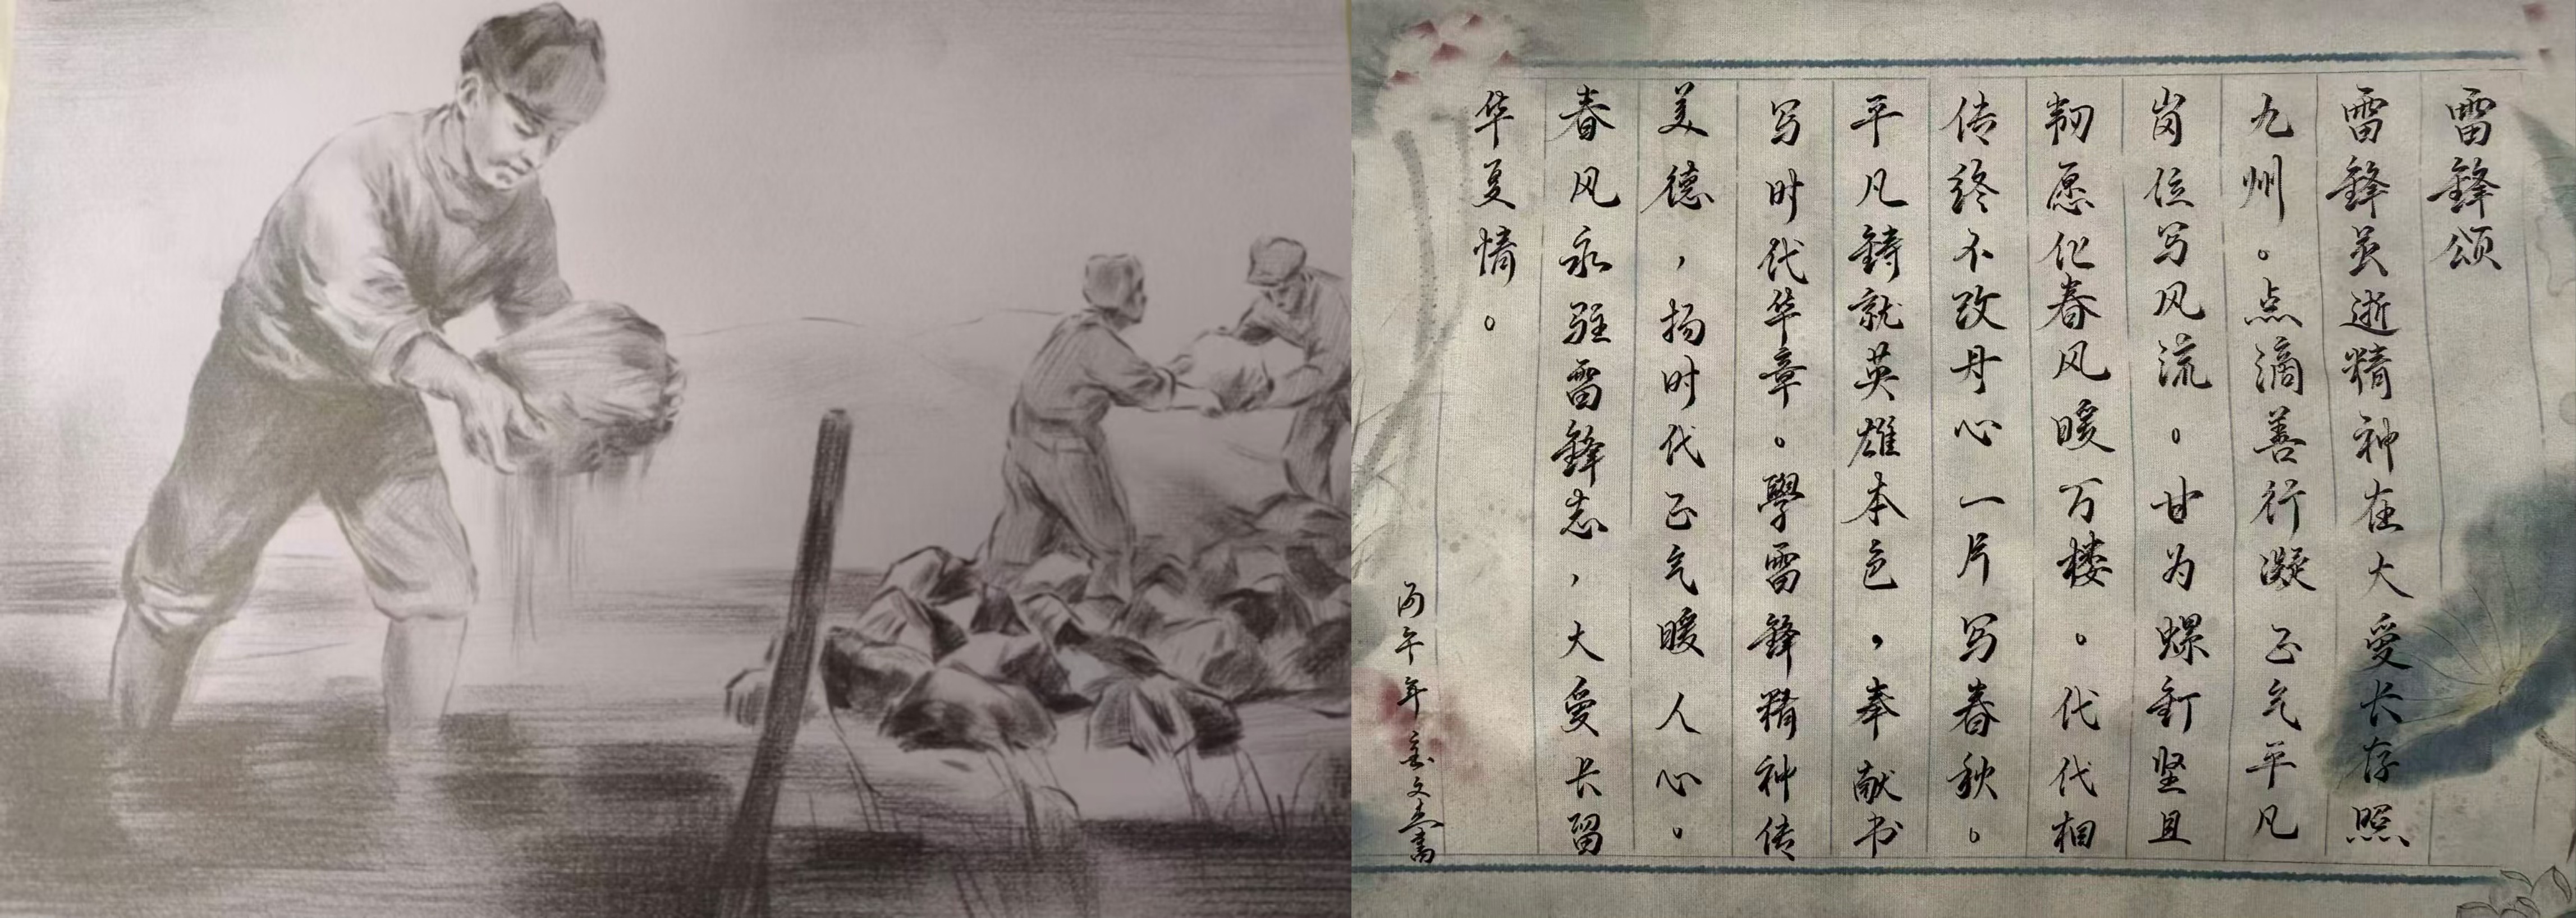 雷鋒颂
雷鋒虽逝精神在大爱长存照
九州。点滴善行凝正气平凡
岗位写风流。甘为螺釘坚且
韧愿化春风暖万楼。代代相
传终不改丹心一片写春秋。
平凡鋳就英雄本色，奉献书
写时代华章。學雷鋒精神传
美德，扬时代正气暖人心。
春风永驻雷鋒志，大爱长留
华夏情。
丙午年 文 書